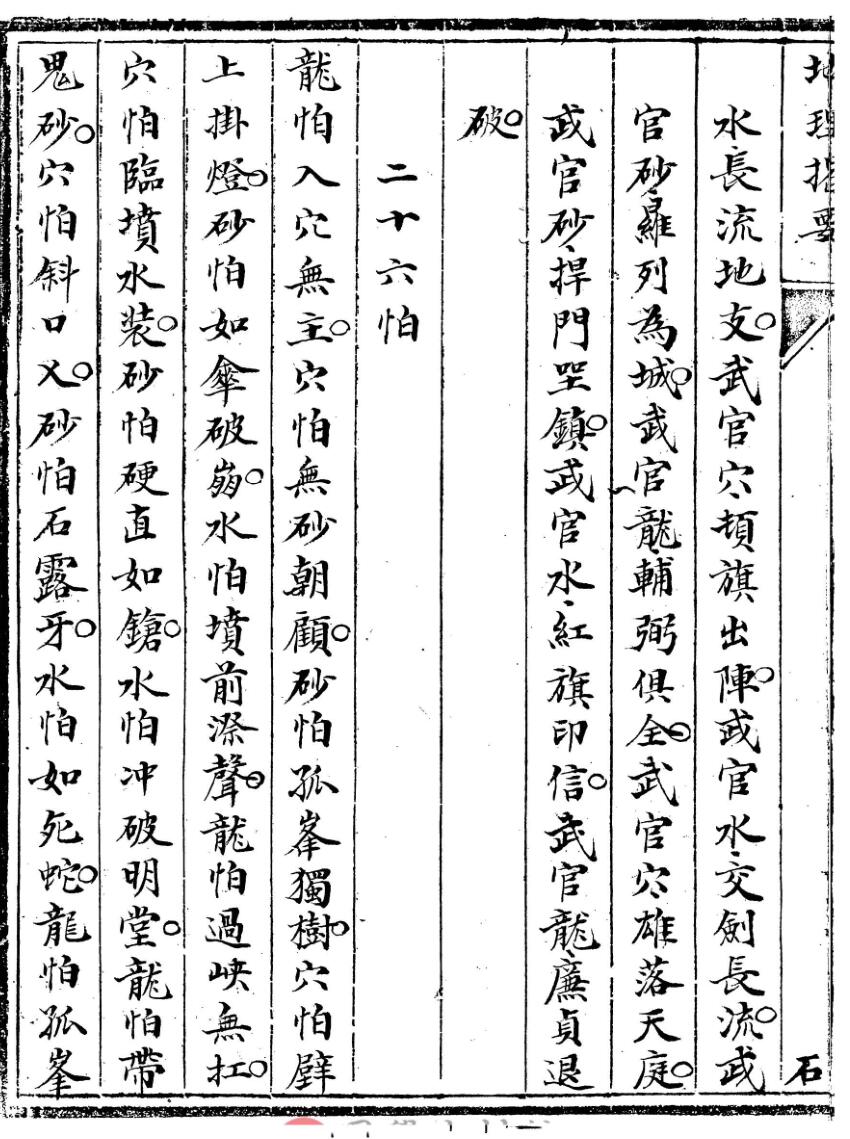 地理指要 石
水長流地支○武官穴、頓旗出陣○武官水、交劍長流○武
官砂、羅列為城○武官龍、輔弼俱全○武官穴、雄落天庭○
武官砂、捍門坐鎮○武官水、紅旗印信○武官龍、廉貞退
破○
二十六怕
龍怕入穴無主○穴怕無砂朝顧○砂怕孤峯獨樹○穴怕壁
上掛燈○砂怕如傘破崩○水怕墳前滌聲○龍怕過峽無扛○
穴怕臨墳水裝○砂怕硬直如鎗○水怕冲破明堂○龍怕帶
鬼砂○穴怕斜口乂○砂怕石露牙○水怕如死蛇○龍怕孤峯